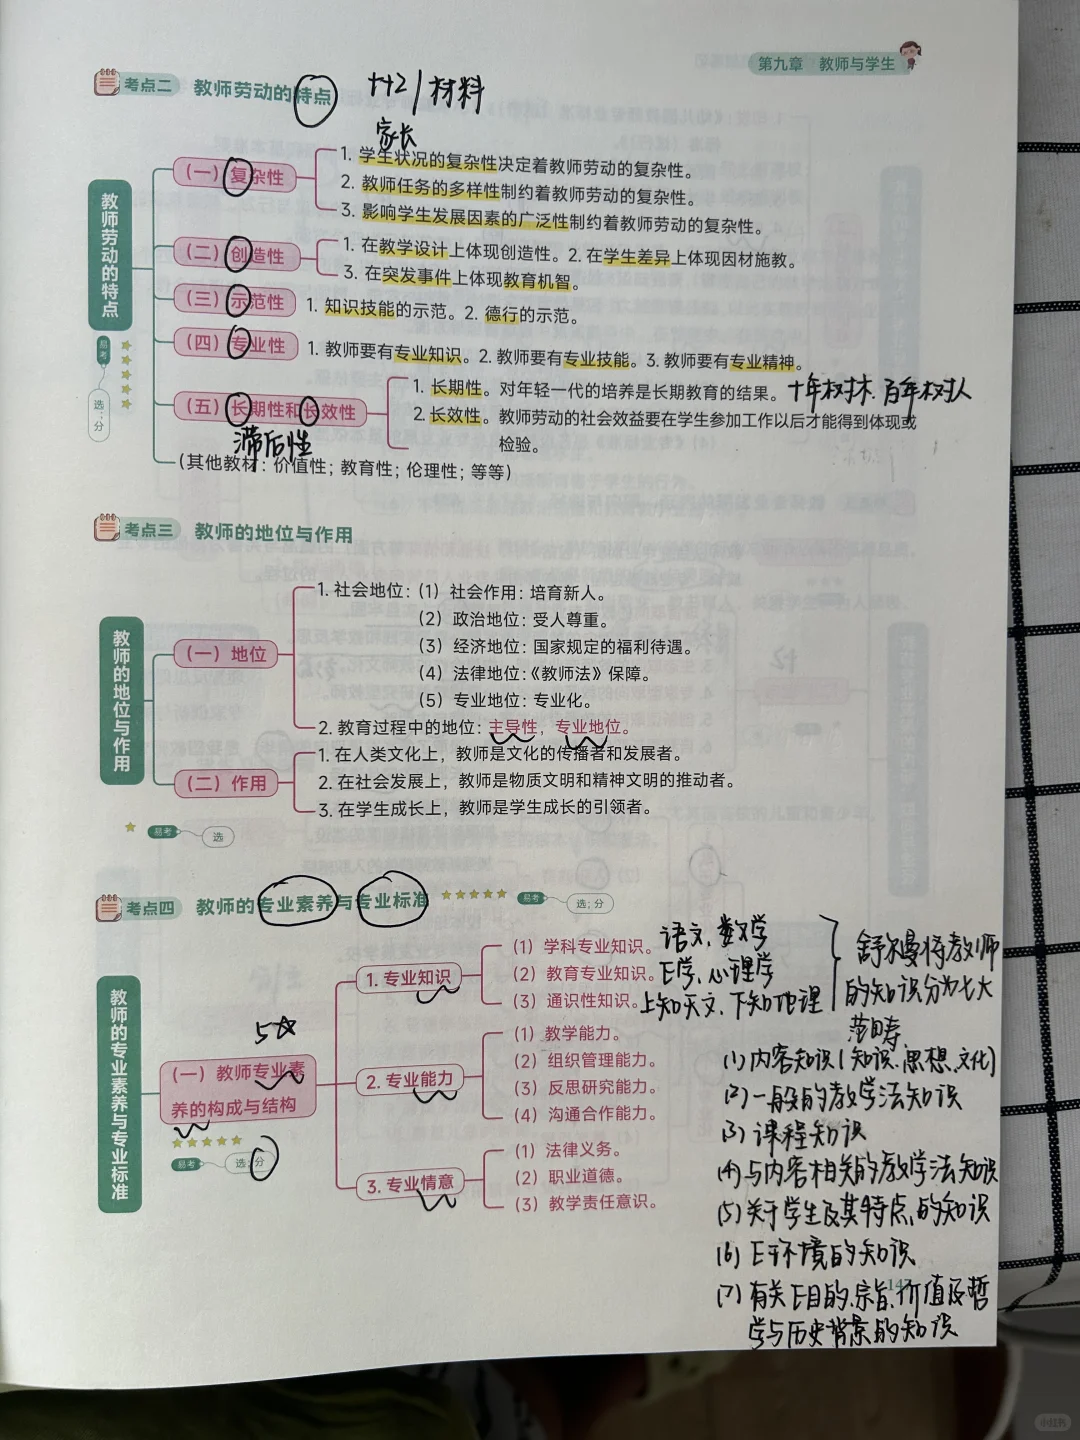 第九章 教师与学生
考点二 教师劳动的特点 1+2/材料
家长
教师劳动的特点
（一）复杂性
1. 学生状况的复杂性决定着教师劳动的复杂性。
2. 教师任务的多样性制约着教师劳动的复杂性。
3. 影响学生发展因素的广泛性制约着教师劳动的复杂性。
（二）创造性
1. 在教学设计上体现创造性。2. 在学生差异上体现因材施教。
3. 在突发事件上体现教育机智。
（三）示范性 1. 知识技能的示范。2. 德行的示范。
（四）专业性 1. 教师要有专业知识。2. 教师要有专业技能。3. 教师要有专业精神。
易考
选；分
（五）长期性和长效性
滞后性
1. 长期性。对年轻一代的培养是长期教育的结果。十年树木，百年树人
2. 长效性。教师劳动的社会效益要在学生参加工作以后才能得到体现或
检验。
（其他教材：价值性；教育性；伦理性；等等）
考点三 教师的地位与作用
教师的地位与作用
（一）地位
1. 社会地位：（1）社会作用：培育新人。
（2）政治地位：受人尊重。
（3）经济地位：国家规定的福利待遇。
（4）法律地位：《教师法》保障。
（5）专业地位：专业化。
2. 教育过程中的地位：主导性，专业地位。
（二）作用
1. 在人类文化上，教师是文化的传播者和发展者。
2. 在社会发展上，教师是物质文明和精神文明的推动者。
3. 在学生成长上，教师是学生成长的引领者。
易考 选
考点四 教师的专业素养与专业标准 易考 选；分
教师的专业素养与专业标准
5☆
（一）教师专业素
养的构成与结构
易考 选；分
1. 专业知识
（1）学科专业知识。语文、数学
（2）教育专业知识。E学、心理学
（3）通识性知识。上知天文、下知地理
2. 专业能力
（1）教学能力。
（2）组织管理能力。
（3）反思研究能力。
（4）沟通合作能力。
3. 专业情意
（1）法律义务。
（2）职业道德。
（3）教学责任意识。
舒尔曼将教师
的知识分为七大
范畴
(1)内容知识(知识、思想、文化)
(2)一般的教学法知识
(3)课程知识
(4)与内容相关的教学法知识
(5)关于学生及其特点的知识
(6)E环境的知识
(7)有关E目的、宗旨、价值及哲
学与历史背景的知识
小红书